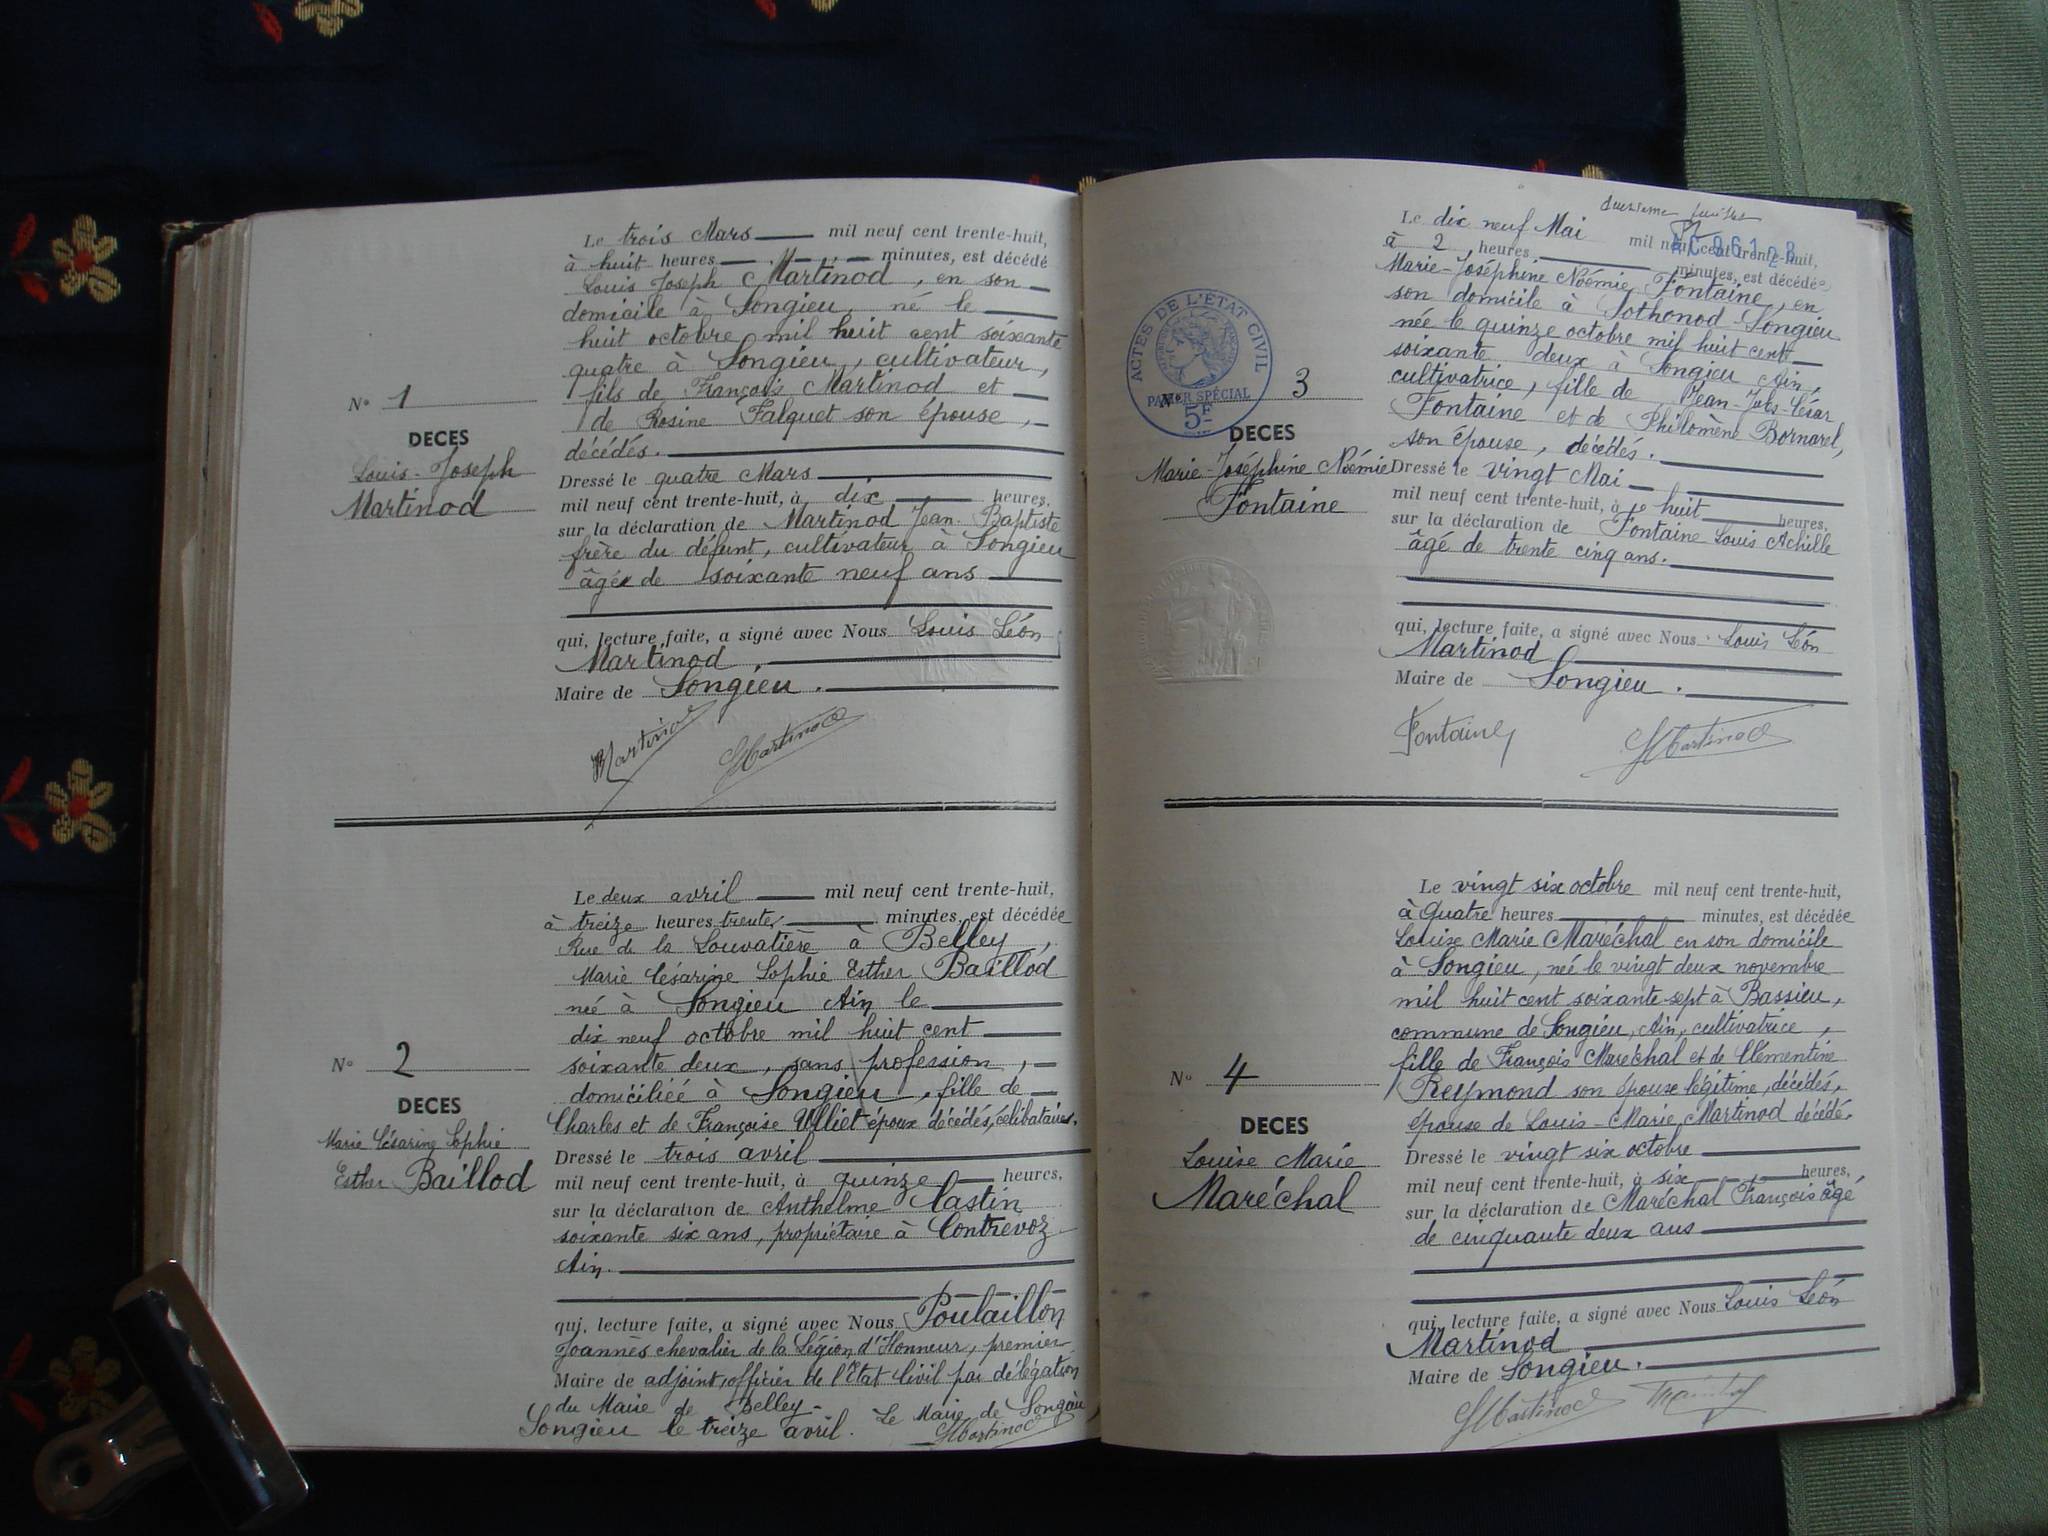 Le trois Mars mil neuf cent trente-huit,
à huit heures minutes, est décédé
Louis Joseph Martinod, en son
domicile à Songieu, né le
huit octobre mil huit cent soixante
quatre à Songieu, cultivateur,
fils de François Martinod et
de Rosine Falquet son épouse,
décédés.
N° 1
DECES
Louis-Joseph
Martinod
Dressé le quatre Mars
mil neuf cent trente-huit, à dix heures,
sur la déclaration de Martinod Jean-Baptiste
frère du défunt, cultivateur à Songieu
âgé de soixante neuf ans
qui, lecture faite, a signé avec Nous Louis Léon
Martinod,
Maire de Songieu.
Martinod Martinod
Le deux avril mil neuf cent trente-huit,
à treize heures trente minutes, est décédée
Rue de la Louvatière à Belley,
Marie Césarine Sophie Esther Baillod
né à Songieu Ain le
dix neuf octobre mil huit cent
soixante deux, sans profession,
domiciliéé à Songieu, fille de
Charles et de Françoise Ulliet époux décédés, célibataire.
N° 2
DECES
Marie Césarine Sophie
Esther Baillod
Dressé le trois avril
mil neuf cent trente-huit, à quinze heures,
sur la déclaration de Anthelme Castin
soixante six ans, propriétaire à Contrevoz
Ain.
qui, lecture faite, a signé avec Nous Poulaillon
Joannès chevalier de la Légion d'Honneur, premier
Maire de adjoint, officier de l'Etat Civil par délégation
du Maire de Belley.
Songieu le treize avril. Le Maire de Songieu
Martinod
Le dix neuf Mai mil neuf cent trente-huit,
à 2 heures minutes, est décédée
Marie-Joséphine Noémie Fontaine, en
son domicile à Sothonod-Songieu
née le quinze octobre mil huit cent
soixante deux à Songieu Ain,
cultivatrice, fille de Jean-Jules-César
Fontaine et de Philomène Bornarel,
son épouse, décédés.
ACTES DE L'ÉTAT CIVIL
PAPIER SPÉCIAL
5F
N° 3
DECES
Marie-Joséphine Noémie
Fontaine
Dressé le vingt Mai
mil neuf cent trente-huit, à huit heures,
sur la déclaration de Fontaine Louis Achille
âgé de trente cinq ans.
qui, lecture faite, a signé avec Nous Louis Léon
Martinod
Maire de Songieu.
Fontaine Martinod
Le vingt six octobre mil neuf cent trente-huit,
à quatre heures minutes, est décédée
Louise Marie Maréchal en son domicile
à Songieu, née le vingt deux novembre
mil huit cent soixante sept à Bassieu,
commune de Songieu, Ain, cultivatrice,
fille de François Maréchal et de Clémentine
Reymond son épouse légitime, décédés,
épouse de Louis-Marie Martinod décédé.
N° 4
DECES
Louise Marie
Maréchal
Dressé le vingt six octobre
mil neuf cent trente-huit, à six heures,
sur la déclaration de Maréchal François âgé
de cinquante deux ans
qui, lecture faite, a signé avec Nous Louis Léon
Martinod
Maire de Songieu.
Martinod